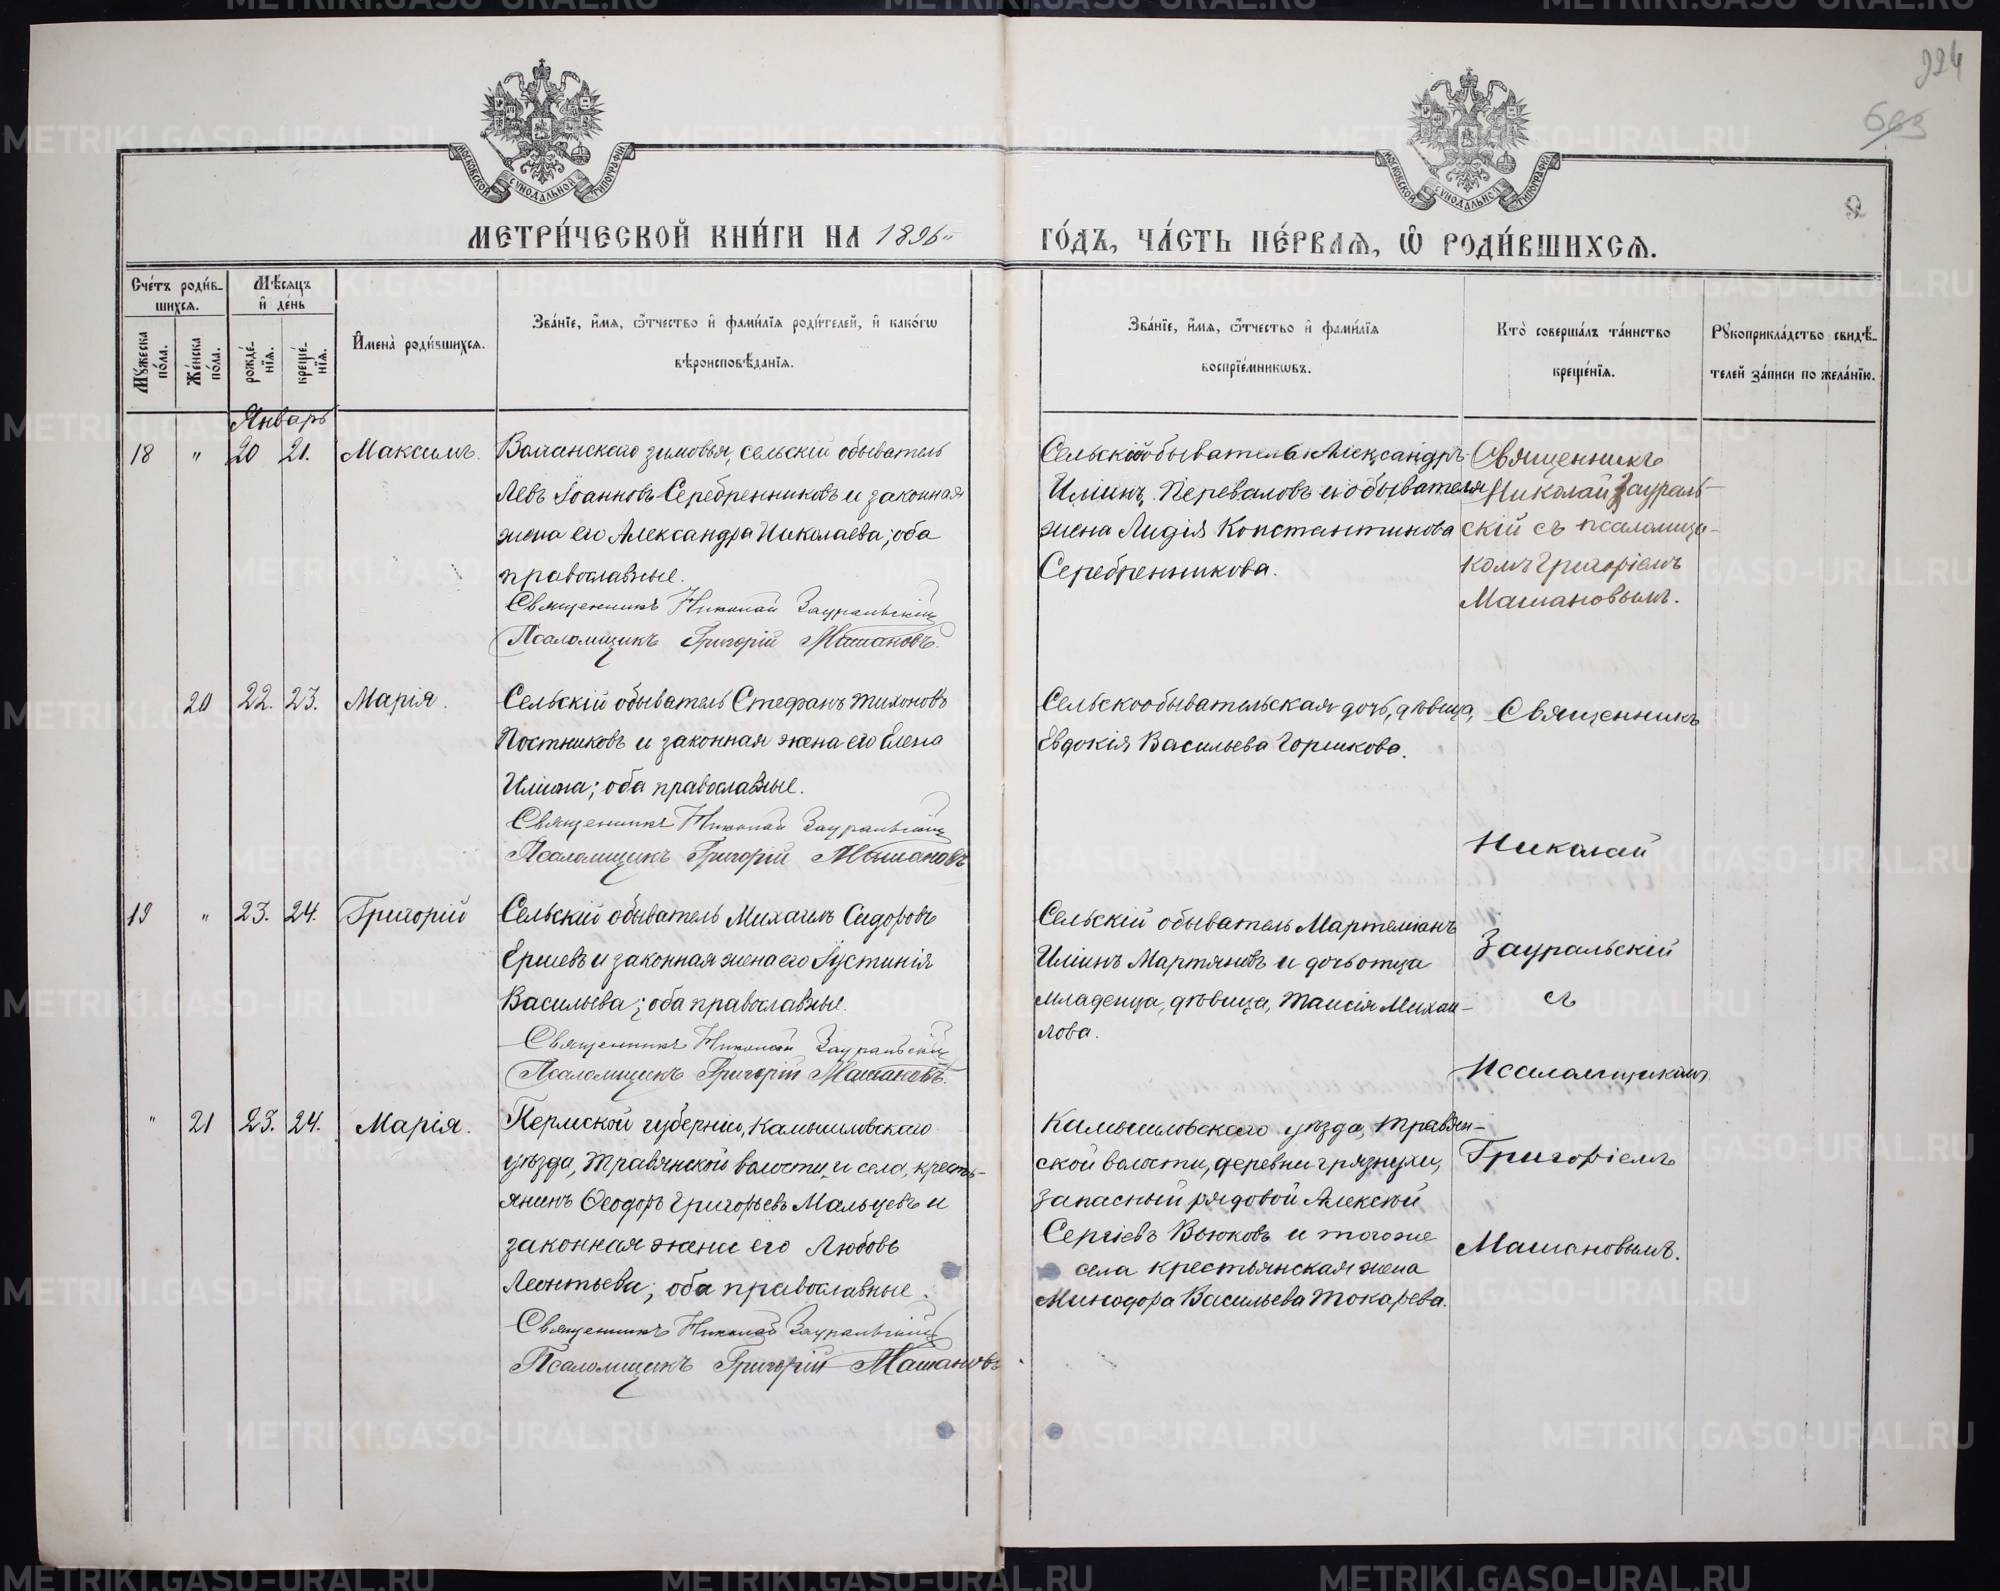 224
663
МОСКОВСКОЙ СѴНОДАЛЬНОЙ ТИПОГРАФІИ
МОСКОВСКОЙ СѴНОДАЛЬНОЙ ТИПОГРАФІИ
МЕТРИ́ЧЕСКОЙ КНИ́ГИ НА 1896
ГО́ДЪ, ЧА́СТЬ ПЕ́РВАѦ, Ѽ РОДИ́ВШИХСѦ.
Сче́тъ роди́в-
шихсѧ.
Мѣ́сѧцъ
и҆ де́нь
Мꙋжеска по́ла.
Же́нска по́ла.
рожде́-нїѧ.
креще́-нїѧ.
И҆мена̀ роди́вшихсѧ.
Зва́нїе, и҆́мѧ, ѻ҆́тчество и҆ фами́лїѧ роди́телей, и҆ како́гѡ
вѣроисповѣ́данїѧ.
Зва́нїе, и҆́мѧ, ѻ҆́тчество и҆ фами́лїѧ
воспрїе́мникѡвъ.
Кто̀ соверша́лъ та́инство
креще́нїѧ.
Рꙋкоприкла́дство свидѣ́-
телей за́писи по жела́нїю.
Январь
18 " 20 21. Максимъ.
Волчанскаго зимовья, сельскій обыватель
Левъ Іоанновъ Серебренниковъ и законная
жена его Александра Николаева; оба
православные.
Священникъ Николай Зауральскій
Псаломщикъ Григорій Машановъ.
Сельскій обыватель Александръ
Иліинъ Переваловъ и обывателя
жена Лидія Константинова
Серебренникова.
Священникъ
Николай Заураль-
скій съ псаломщи-
комъ Григоріемъ
Машановымъ.
20 22. 23. Марія.
Сельскій обыватель Стефанъ Тихоновъ
Постниковъ и законная жена его Елена
Иліина; оба православные.
Священникъ Николай Зауральскій
Псаломщикъ Григорій Машановъ
Сельскообывательская дочь, дѣвица,
Евдокія Васильева Горшкова.
Священникъ
Николай
19 " 23. 24. Григорій
Сельскій обыватель Михаилъ Сидоровъ
Ершевъ и законная жена его Іустинія
Васильева; оба православные.
Священникъ Николай Зауральскій
Псаломщикъ Григорій Машановъ.
Сельскій обыватель Мартеміанъ
Иліинъ Мартяновъ и дочь отца
младенца, дѣвица, Таисія Михаи-
лова.
Зауральскій
съ
Псаломщикомъ
" 21 23. 24. Марія.
Пермской губерніи, Камышловскаго
уѣзда, Травянской волости и села, кресть-
янинъ Ѳеодоръ Григорьевъ Мальцевъ и
законная жена его Любовь
Леонтьева; оба православные.
Священникъ Николай Зауральскій
Псаломщикъ Григорій Машановъ
Камышловскаго уѣзда, Травян-
ской волости, деревни Грязнухи,
запасный рядовой Алексѣй
Сергіевъ Вьюковъ и тогоже
села крестьянская жена
Минодора Васильева Токарева.
Григоріемъ
Машановымъ.
METRIKI.GASO-URAL.RU